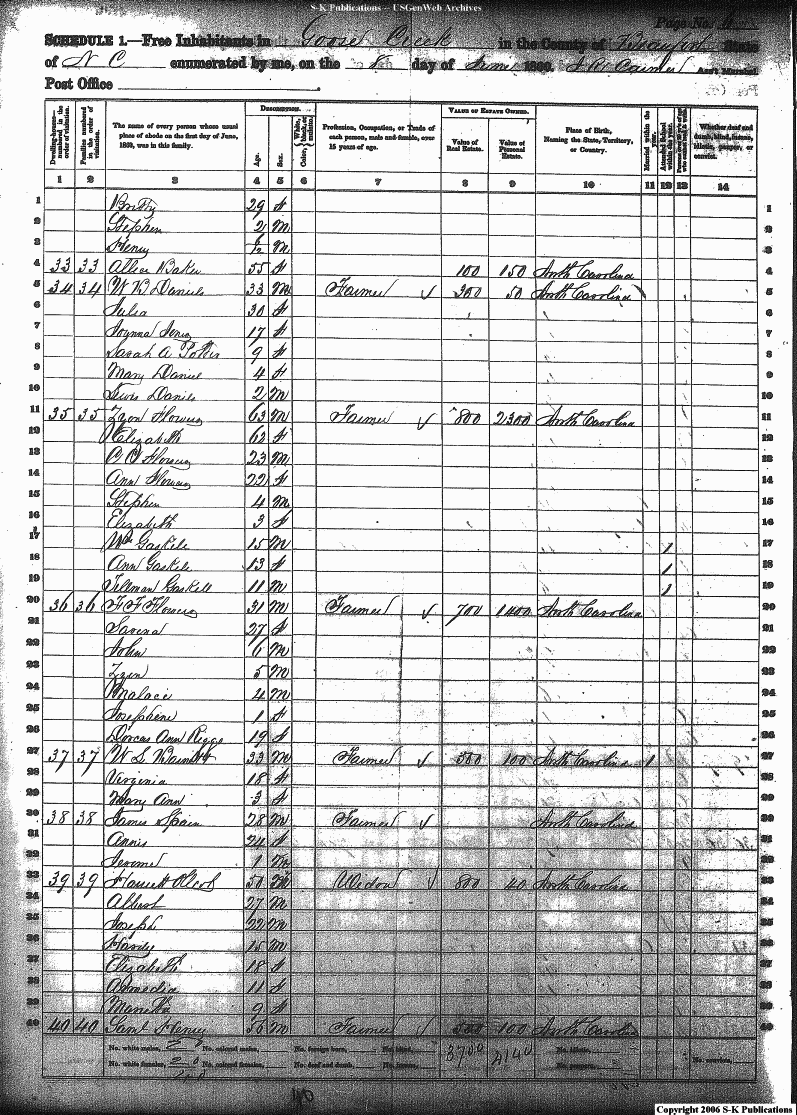 S-K Publications – USGenWeb Archives
Page No.
SCHEDULE 1.—Free Inhabitants in Goose Creek in the County of Beaufort State
of N C enumerated by me, on the 8 day of June 1860. Ass't Marshal.
Post Office
Dwelling-houses—numbered in the order of visitation.
Families numbered in the order of visitation.
The name of every person whose usual place of abode on the first day of June, 1860, was in this family.
DESCRIPTION.
Age.
Sex.
Color, White, black, or mulatto.
Profession, Occupation, or Trade of each person, male and female, over 15 years of age.
VALUE OF ESTATE OWNED.
Value of Real Estate.
Value of Personal Estate.
Place of Birth, Naming the State, Territory, or Country.
Married within the year.
Attended School within the year.
Whether deaf and dumb, blind, insane, idiotic, pauper, or convict.
1 2 3 4 5 6 7 8 9 10 11 12 13 14
1 29 f 1
2 Stephen 2 m 2
3 Henry m 3
4 33 33 Baker 55 f 100 150 North Carolina 4
5 34 34 W B Daniels 33 m Farmer 300 50 North Carolina 5
6 Julia 30 f 6
7 17 f 7
8 Sarah A Potter 9 f 8
9 Mary Daniel 4 f 9
10 Lewis Daniels 2 m 10
11 35 35 Flowers 63 m Farmer 800 2300 North Carolina 11
12 Elizabeth 62 f 12
13 Flowers 23 m 13
14 Ann Flowers 22 f 14
15 Stephen 4 m 15
16 Elizabeth 3 f 16
17 Wm Gaskill 15 m 1 17
18 Ann Gaskill 13 f 1 18
19 Tillman Gaskill 11 m 1 19
20 36 36 F F Flowers 31 m Farmer 700 1400 North Carolina 20
21 27 f 21
22 John 6 m 22
23 5 m 23
24 4 m 24
25 Josephene 1 f 25
26 Dorcas Ann Riggs 19 f 26
27 37 37 W S 33 m Farmer 500 100 North Carolina 1 27
28 Virginia 18 f 28
29 Mary Ann 3 f 29
30 38 38 James Spain 28 m Farmer North Carolina 30
31 Annis 24 f 31
32 Jerome 1 m 32
33 39 39 50 Wedow 800 40 North Carolina 33
34 Albert 27 m 34
35 Joseph 22 m 35
36 Hardy 15 m 36
37 Elizabeth 18 f 37
38 11 f 38
39 9 f 39
40 40 40 Saml Henry 56 m Farmer 500 100 North Carolina 40
No. white males, No. colored males, No. foreign born, No. blind, 3700 4140 No. idiotic, No. convicts,
No. white females, No. colored females, No. deaf and dumb, No. insane, No. paupers,
Copyright 2006 S-K Publications